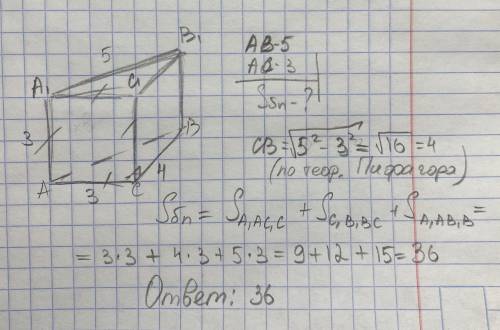 B₁
5
A₁
C₁
3
B
A
3
C
4
AB-5
AC-3
Sбп-?
CB=√5²-3²=√16=4
(по теор. Пифагора)
Sбп= S A₁AC₁C + S C₁B₁BC + S A₁AB₁B =
= 3·3 + 4·3+5·3= 9+12+15=36
Ответ: 36